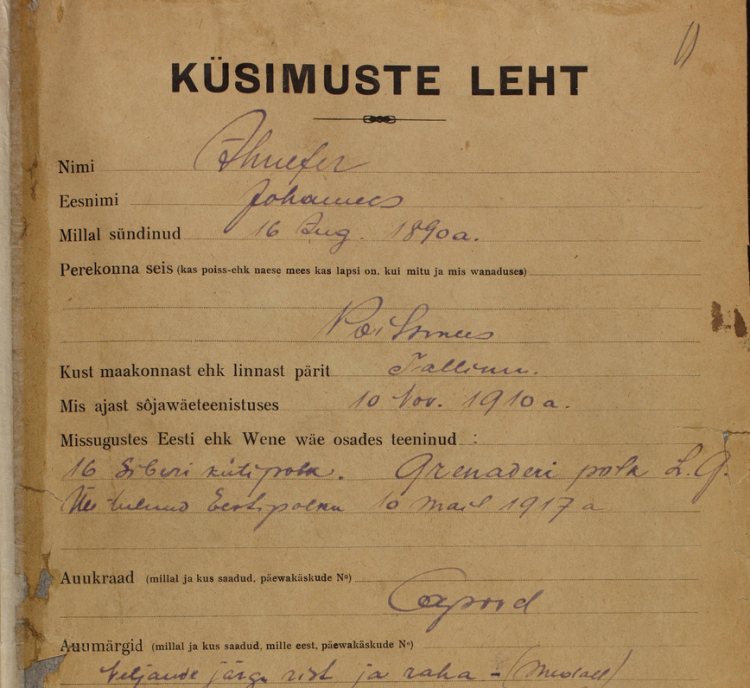 KÜSIMUSTE LEHT
Nimi
Eesnimi Johannes
Millal sündinud 16 Aug. 1890 a.
Perekonna seis (kas poiss-ehk naese mees kas lapsi on, kui mitu ja mis wanaduses)
Poissmees
Kust maakonnast ehk linnast pärit Tallinn.
Mis ajast sôjawäeteenistuses 10 Nov. 1910 a.
Missugustes Eesti ehk Wene wäe osades teeninud :
16 Siberi kütipolk. Grenaderi polk L. G.
tulnud Eestipolku 10 mail 1917 a
Auukraad (millal ja kus saadud, päewakäskude No)
Auumärgid (millal ja kus saadud, mille eest, päewakäskude No)
Neljande järgu rist ja raha - (medall)